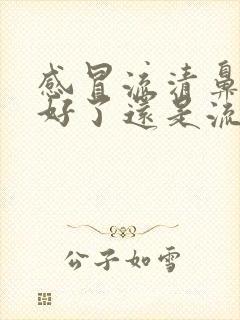 感冒流清鼻
好了還是流
公子如雪